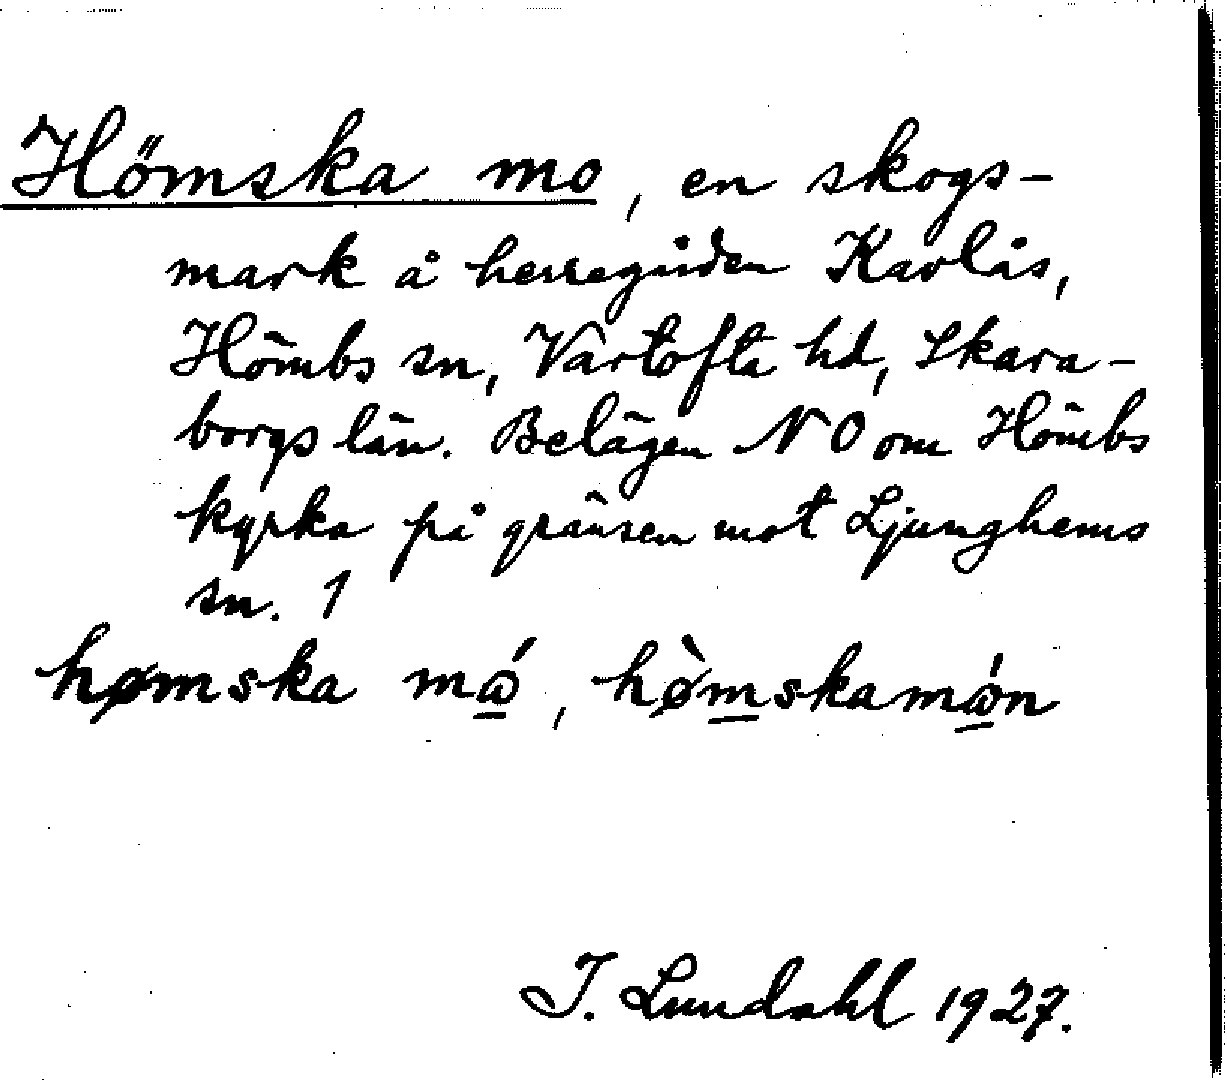 Hömska mo, en skogs-
mark å herregården Kavlås,
Hömbs sn, Vartofta hd, Skara-
borgs län. Belägen NO om Hömbs
kyrka på gränsen mot Ljunghems
sn. 1
hømska mώ, hø̀mskamώn
I. Lundahl 1927.